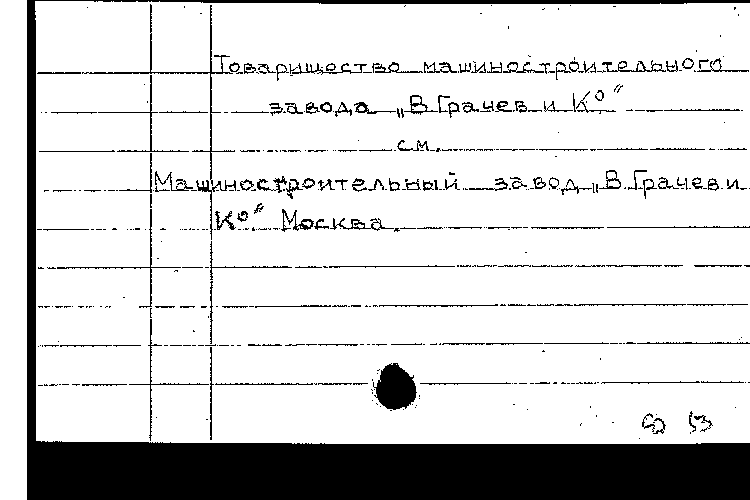 Товарищество машиностроительного
завода „В. Грачев и К°."
см.
Машиностроительный завод „В. Грачев и
К°." Москва.